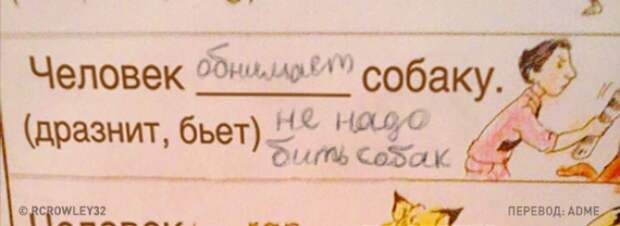 Человек обнимает собаку.
(дразнит, бьет) не надо
бить собак
© RCROWLEY32
ПЕРЕВОД: ADME